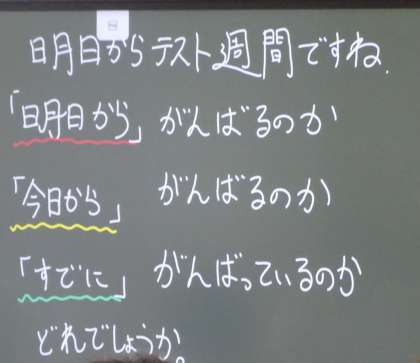 明日からテスト週間ですね.
「明日から」がんばるのか
「今日から」がんばるのか
「すでに」がんばっているのか
どれでしょうか。